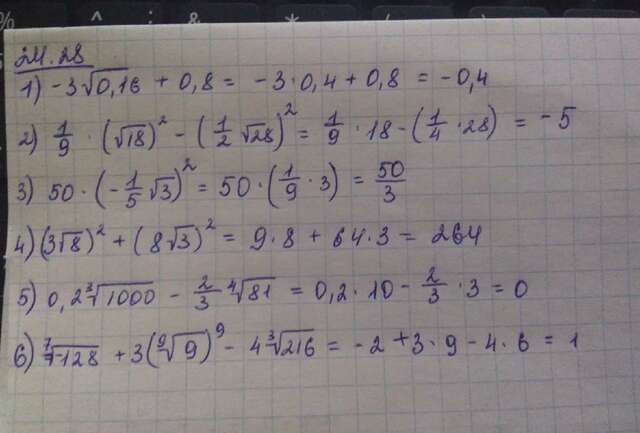 24.28
1) -3√0,16 + 0,8 = -3·0,4 + 0,8 = -0,4
2) 1/9 · (√18)² - (1/2 √28)² = 1/9 · 18 - (1/4 · 28) = -5
3) 50 · (-1/5 √3)² = 50 · (1/9 · 3) = 50/3
4) (3√8)² + (8√3)² = 9·8 + 64·3 = 264
5) 0,2 ∛1000 - 2/3 ∜81 = 0,2·10 - 2/3 · 3 = 0
6) ⁷√-128 + 3(⁹√9)⁹ - 4∛216 = -2 + 3·9 - 4·6 = 1